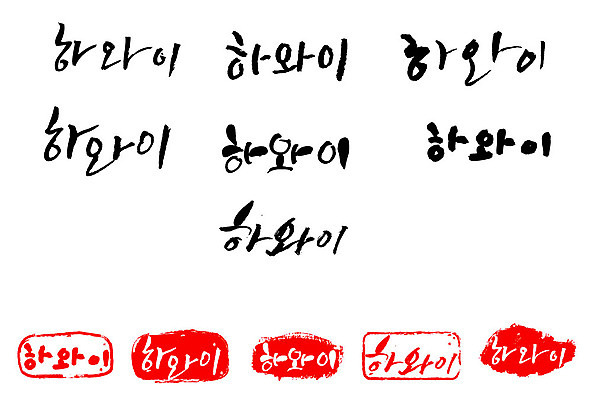 하와이 하와이 하와이
하와이 하와이 하와이
하와이
하와이 하와이 하와이 하와이 하와이